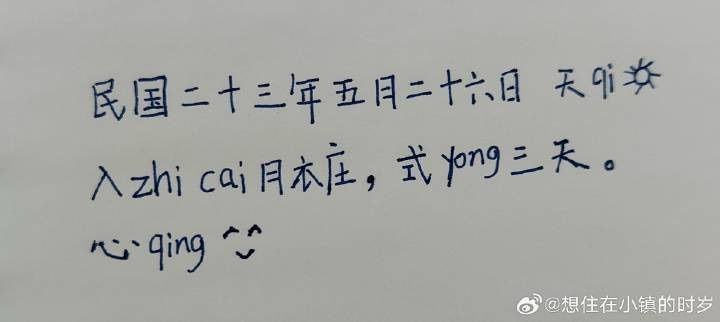 民国二十三年五月二十六日 天qi☼
入zhi cai月衣庄，式yong三天。
心qing ^^
@想住在小镇的时岁